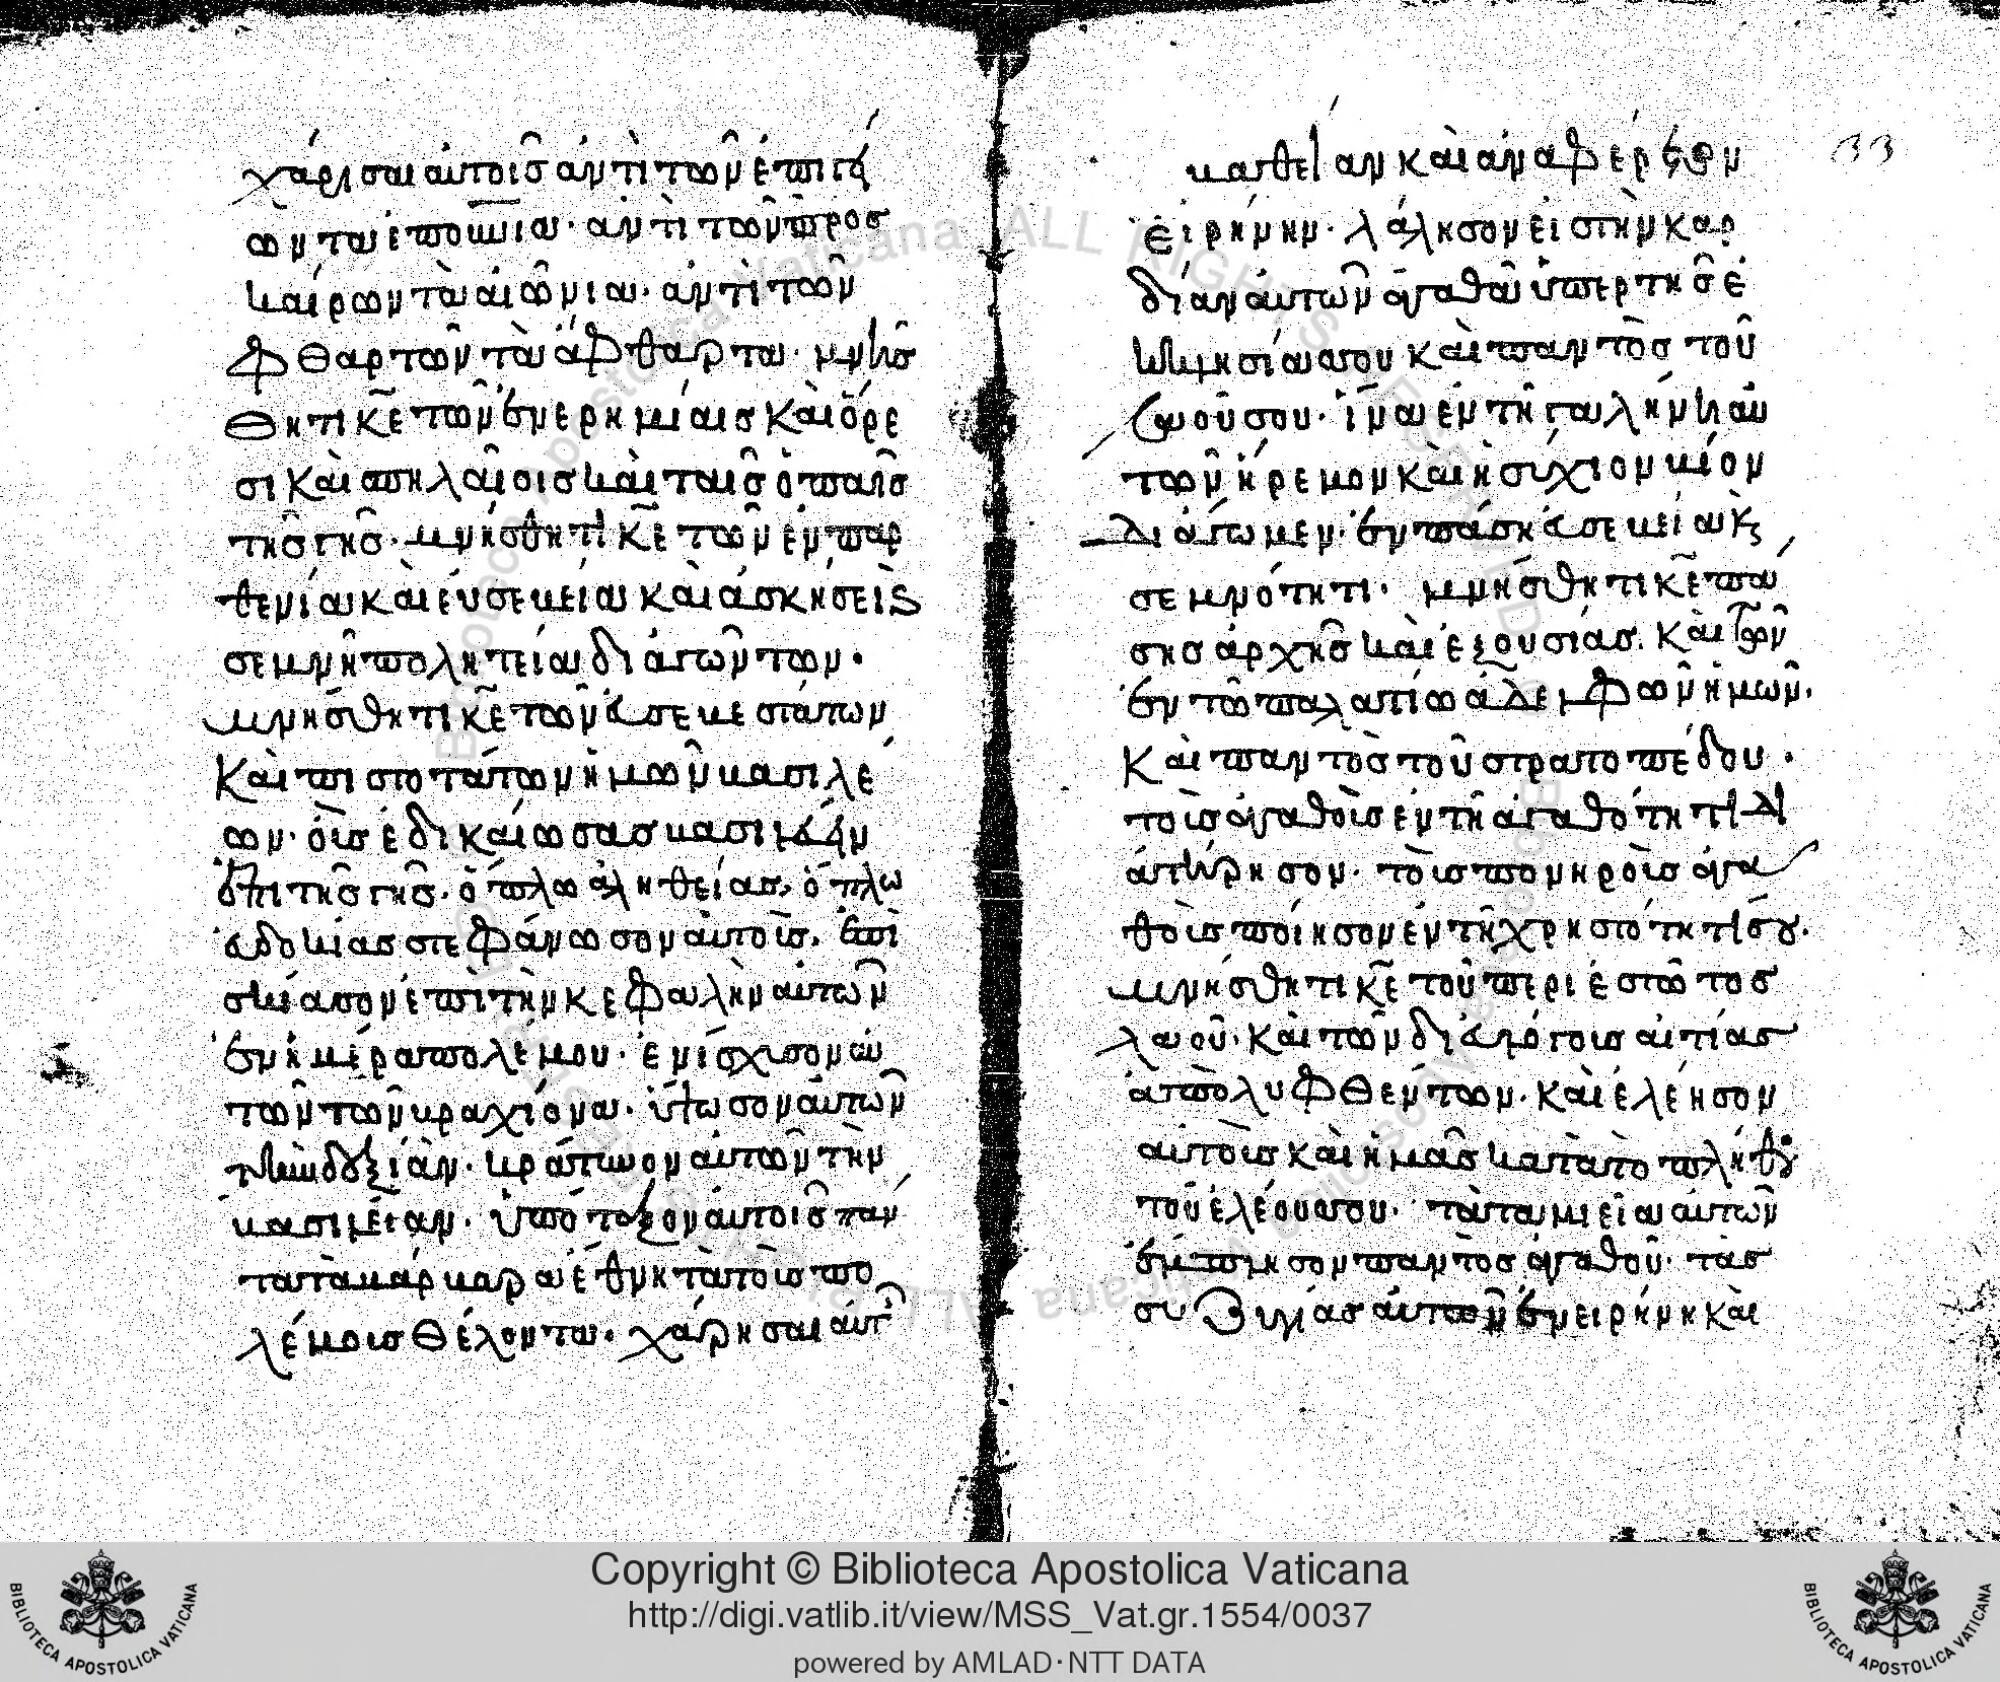 χάρισαι αὐτοῖσ ἀντὶ τῶν ἐπιγεί
ων τὰ ἐπουνια· ἀντὶ τῶν προσ
καίρων τὰ αἰώνια· ἀντὶ τῶν
φθαρτῶν τὰ ἄφθαρτα· μνήσ
θητι κε τῶν ἐν ἐρημίαισ καὶ ὄρε
σι καὶ σπηλαίοισ καὶ ταῖσ ὀπαῖσ
τῆσ γῆσ· μνήσθητι κε τῶν ἐν παρ
θενία καὶ εὐσεβεία καὶ ἀσκήσει καὶ
σεμνῆ πολητεία διάγωντων·
μνήσθητι κε τῶν εὐσεβεστάτων
καὶ πιστοτάτων ἡμῶν βασιλέ
ων· οἷσ ἐδικαίωσασ βασιλεύειν
ἐπὶ τῆσ γῆσ· ὅπλω ἀληθείασ, ὅπλω
εὐδοκίασ στεφάνωσον αὐτοῖσ. ἐπι
σκίασον ἐπὶ τὴν κεφαλὴν αὐτῶν
ἐν ἡμέρα πολέμου· ἐνίσχισον αὐ
τῶν τῶν βραχίονα· ὕψωσον αὐτῶν
τὴν δεξιὰν· κράτυνον αὐτῶν τὴν
βασιλείαν· ὑπόταξον αὐτοῖσ πάν
τα τὰ βάρβαρα ἔθνη τὰ τοῖσ πο
λέμοισ θέλοντα. χάρησαι αὐτοῖσ
βαθεῖαν καὶ ἀναφέρετον
33
εἰρήνην· λάλησον εἰσ τὴν καρ
δίαν αὐτῶν ἀγαθὰ ὑπερ τῆσ ἐκ
κλησίασ σου καὶ παντὸσ τοῦ
λαοῦ σου· ἵνα ἐν τῆ γαλήνη αὐ
τῶν ἤρεμον καὶ ἡσύχιον βίον
διάγωμεν· ἐν πάση εὐσεβεία καὶ
σεμνότητι· μνήσθητι κε πά
σησ ἀρχῆσ καὶ ἐξουσίασ. καὶ τῶν
ἐν τῶ παλατίω ἀδελφῶν ἡμῶν.
καὶ παντὸσ τοῦ στρατοπέδου·
τοῖσ ἀγαθοῖσ ἐν τῆ ἀγαθότητι δι
ατήρησον· τοῖσ πονηροῖσ ἀγα
θοῖσ ποίησον ἐν τῆ χρηστότητί σου.
μνήσθητι κε τοῦ περιεστῶτοσ
λαοῦ· καὶ τῶν δι εὐλόγοισ αἰτίασ
ἀπολυφθεντων· καὶ ἐλέησον
αὐτοῖσ καὶ ἡμᾶσ κατὰ τὸ πλῆθοσ
τοῦ ἐλέουσ σου· τὰ ταμιεῖα αὐτῶν
ἔμπλησον παντὸσ ἀγαθοῦ· τὰσ
συζυγίασ αὐτῶν ἐν εἰρήνη καὶ
Copyright © Biblioteca Apostolica Vaticana
http://digi.vatlib.it/view/MSS_Vat.gr.1554/0037
powered by AMLAD·NTT DATA
BIBLIOTECA APOSTOLICA VATICANA
BIBLIOTECA APOSTOLICA VATICANA